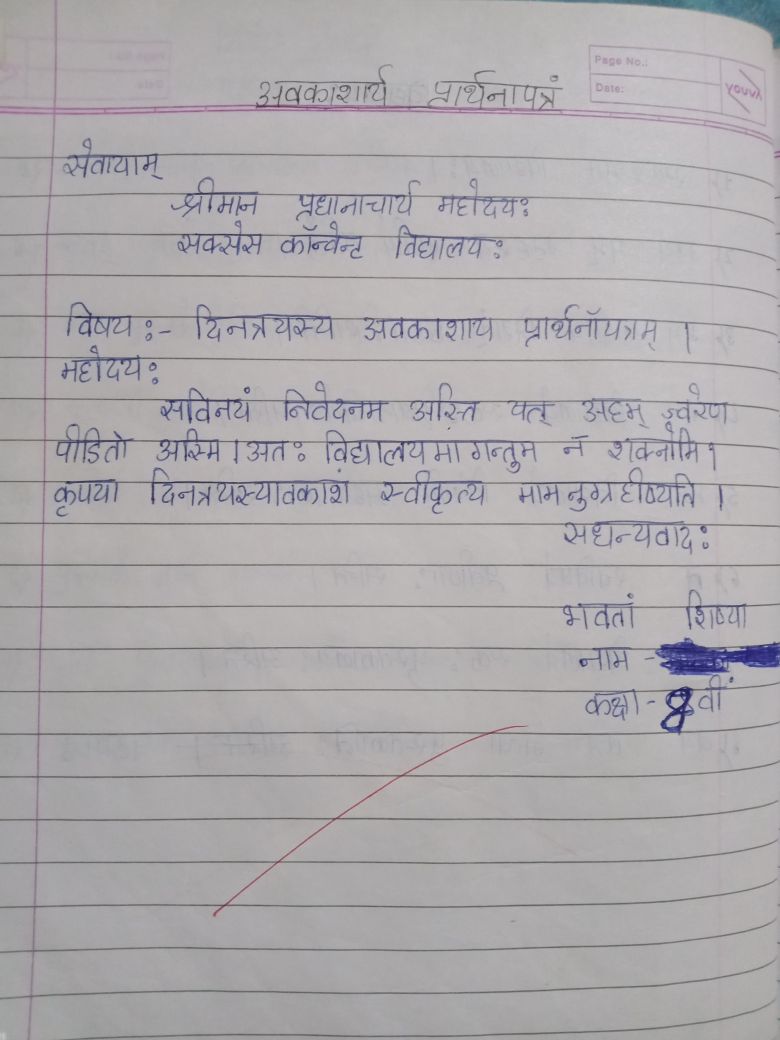 Page No.:
Date:
youva
अवकाशार्य प्रार्थनापत्रं
सेवायाम्
श्रीमान प्रधानाचार्य महोदयः
सक्सेस कॉन्वेन्ट विद्यालयः
विषय :- दिनत्रयस्य अवकाशाय प्रार्थनॉपत्रम् ।
महोदयः
सविनयं निवेदनम अस्ति यत् अहम् ज्वरेण
पीडितो अस्मि । अतः विद्यालयमागन्तुम न शक्नोमि ।
कृपया दिनत्रयस्यावकाशं स्वीकृत्य मामनुग्रहीष्यति ।
सधन्यवादः
भवतां शिष्या
नाम -
कक्षा - 8वीं